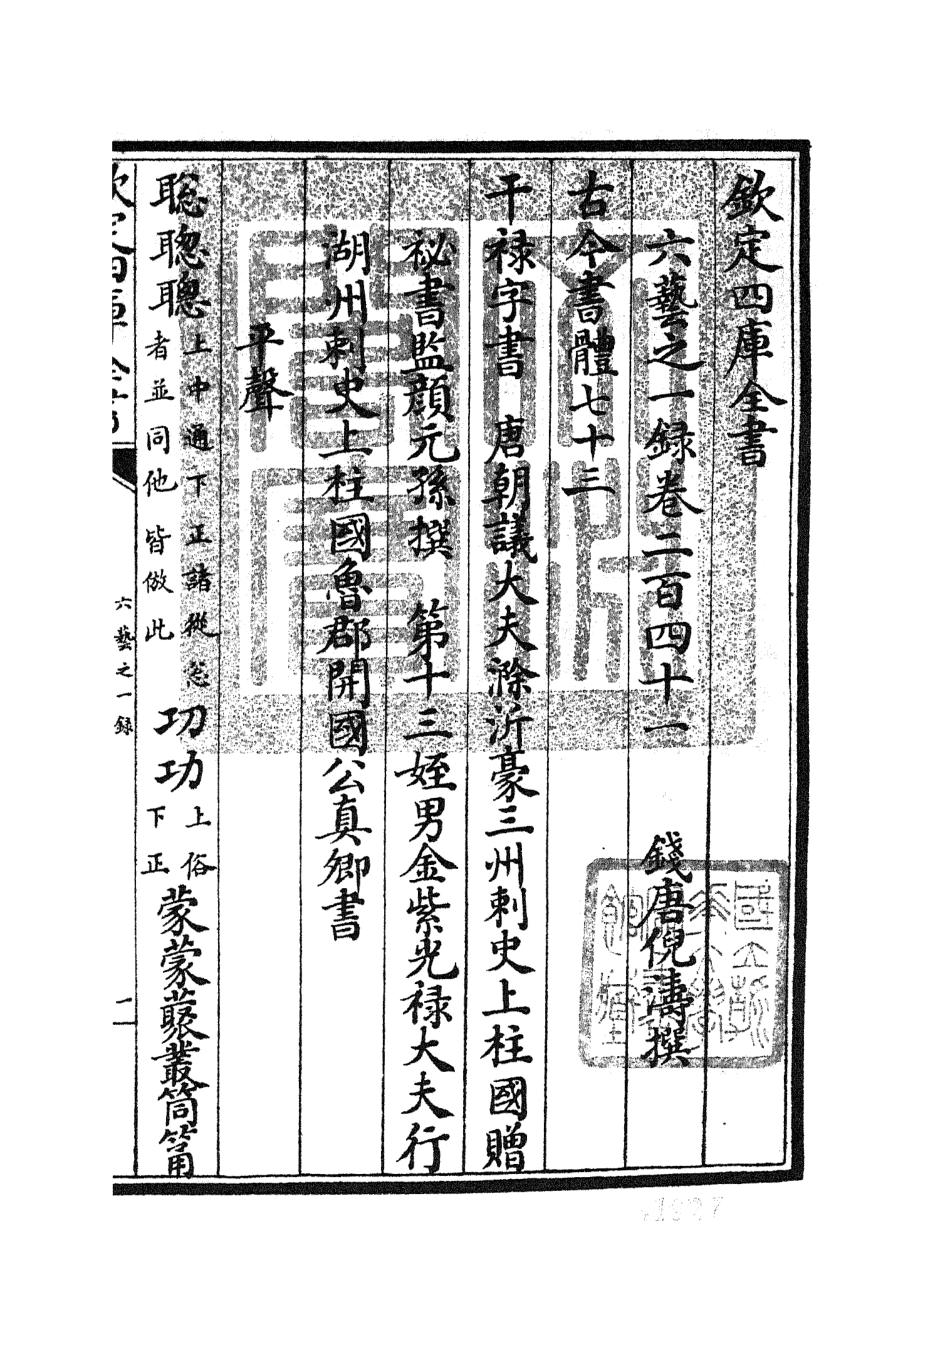 欽定四庫全書
六藝之一錄卷二百四十一 錢唐倪濤撰
古今書體七十三
干祿字書 唐朝議大夫滁沂豪三州刺史上柱國贈
祕書監顔元孫撰 第十三姪男金紫光祿大夫行
湖州刺史上柱國魯郡開國公真卿書
平聲
聡聦聰上中通下正諸從忩者並同他皆倣此 㓛功上俗下正 蒙蒙䕺叢筒筩
六藝之一錄